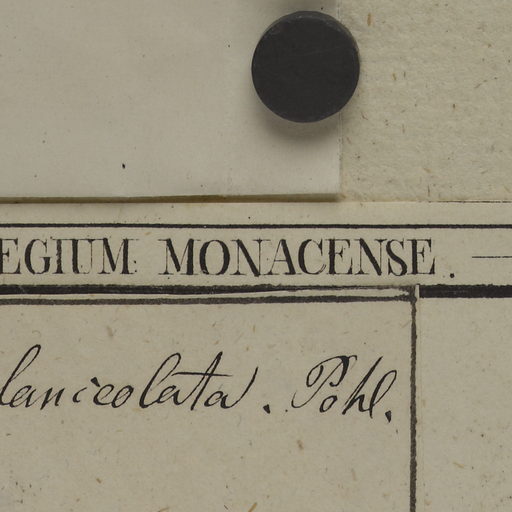 EGIUM MONACENSE.
lanceolata. Pohl.